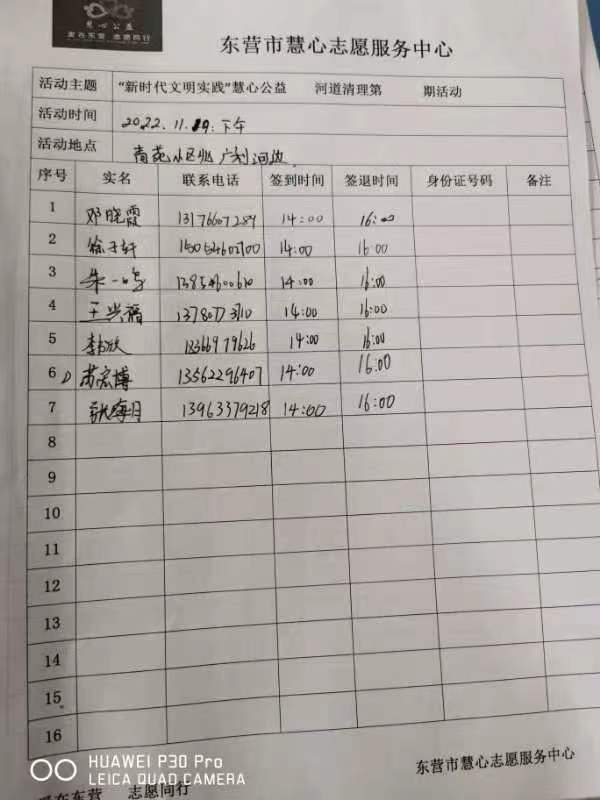 慧心公益
爱在东营 志愿同行
东营市慧心志愿服务中心
活动主题 “新时代文明实践”慧心公益 河道清理第 期活动
活动时间 2022.11.19.下午
活动地点 广利河边
序号 实名 联系电话 签到时间 签退时间 身份证号码 备注
1 邓晓霞 13176607289 14:00 16:00
2 徐子轩 14:00 16:00
3 朱一鸣 14:00 16:00
4 王兴福 14:00 16:00
5 李欣 14:00 16:00
6 苏宏博 13562296407 14:00 16:00
7 张海月 13963379218 14:00 16:00
8
9
10
11
12
13
14
15
16
东营市慧心志愿服务中心
爱在东营 志愿同行
HUAWEI P30 Pro
LEICA QUAD CAMERA